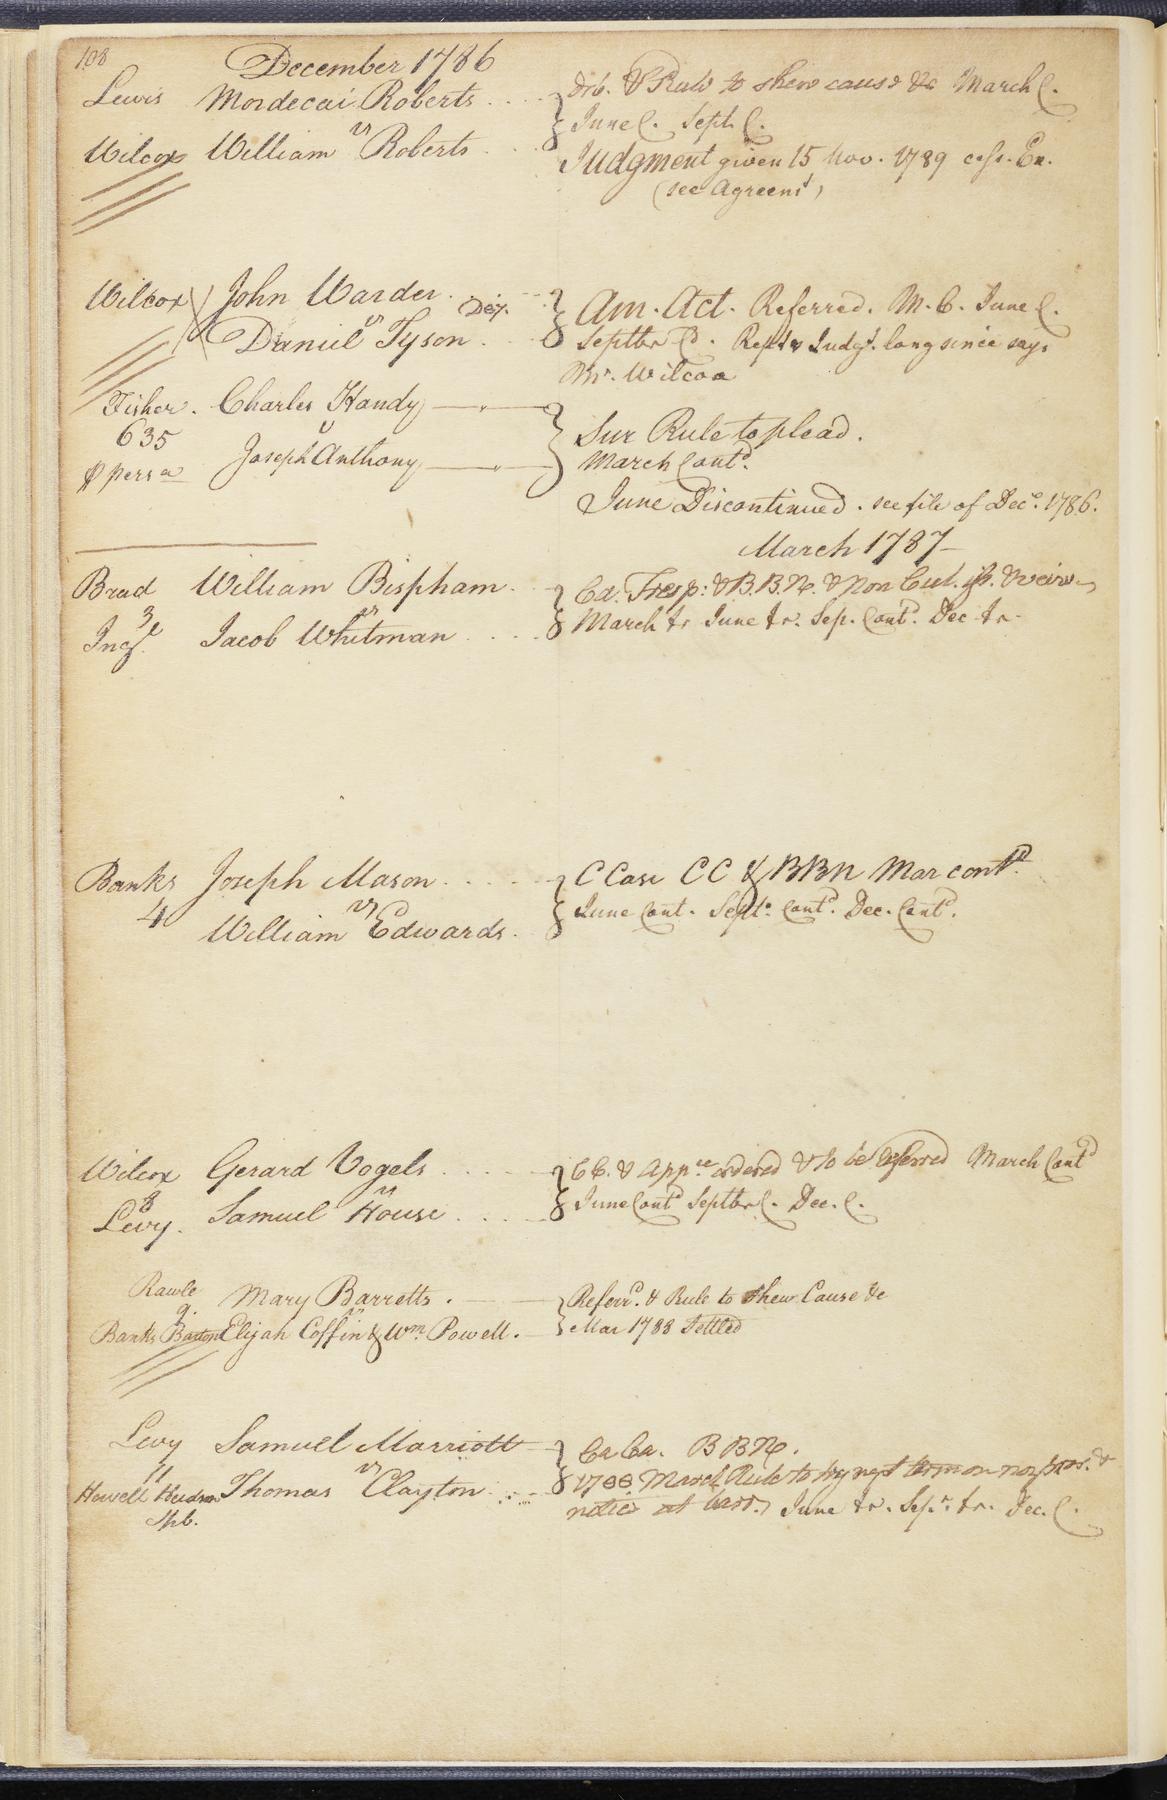 108
December 1786
Lewis Mordecai Roberts . . . . Deb. & Rule to shew cause &c March C.
vs June C. Sept. C.
Wilcox William Roberts . . . Judgment given 15 Nov. 1789
(see Agreemt)
Wilcox John Warder . Am. Act. Referred. M. C. June C.
vs
Daniel Tyson . . Septbr Cd. Rept & Judgt. long since says
Mr. Wilcox
Fisher . Charles Handy Sur Rule to plead .
635 v
Joseph Anthony March Contd.
June Discontinued . see file of Decr. 1786.
March 1787
Brad William Bispham . Ca. Tresp: & B.B.N. & Non Cul.
3 vs
Ingl. Jacob Whitman . . . . March tr June tr. Sep. Contd. Dec. tr.
Banks Joseph Mason . . . . . C Case CC & BBN Mar contd.
4 vs
William Edwards . June Cont. Septr. Contd. Dec. Contd.
Wilcox Gerard Vogels . . . . CC. & Appce ordered & to be referred March Contd
8 vs
Levy . Samuel House . . . . June Contd Septbr C. Dec. C.
Rawle Mary Barretts . Referrd. & Rule to shew Cause &c
9. vs
Banks Barton Elijah Coffin & Wm. Powell . Mar 1788 Settled
Levy Samuel Marriott Ca Ca. B B N.
11 vs
Howell Thomas Clayton . . . 1788 March Rule to try next term or non pros. &
notice at barr. June tr. Sepr. tr. Dec. C.